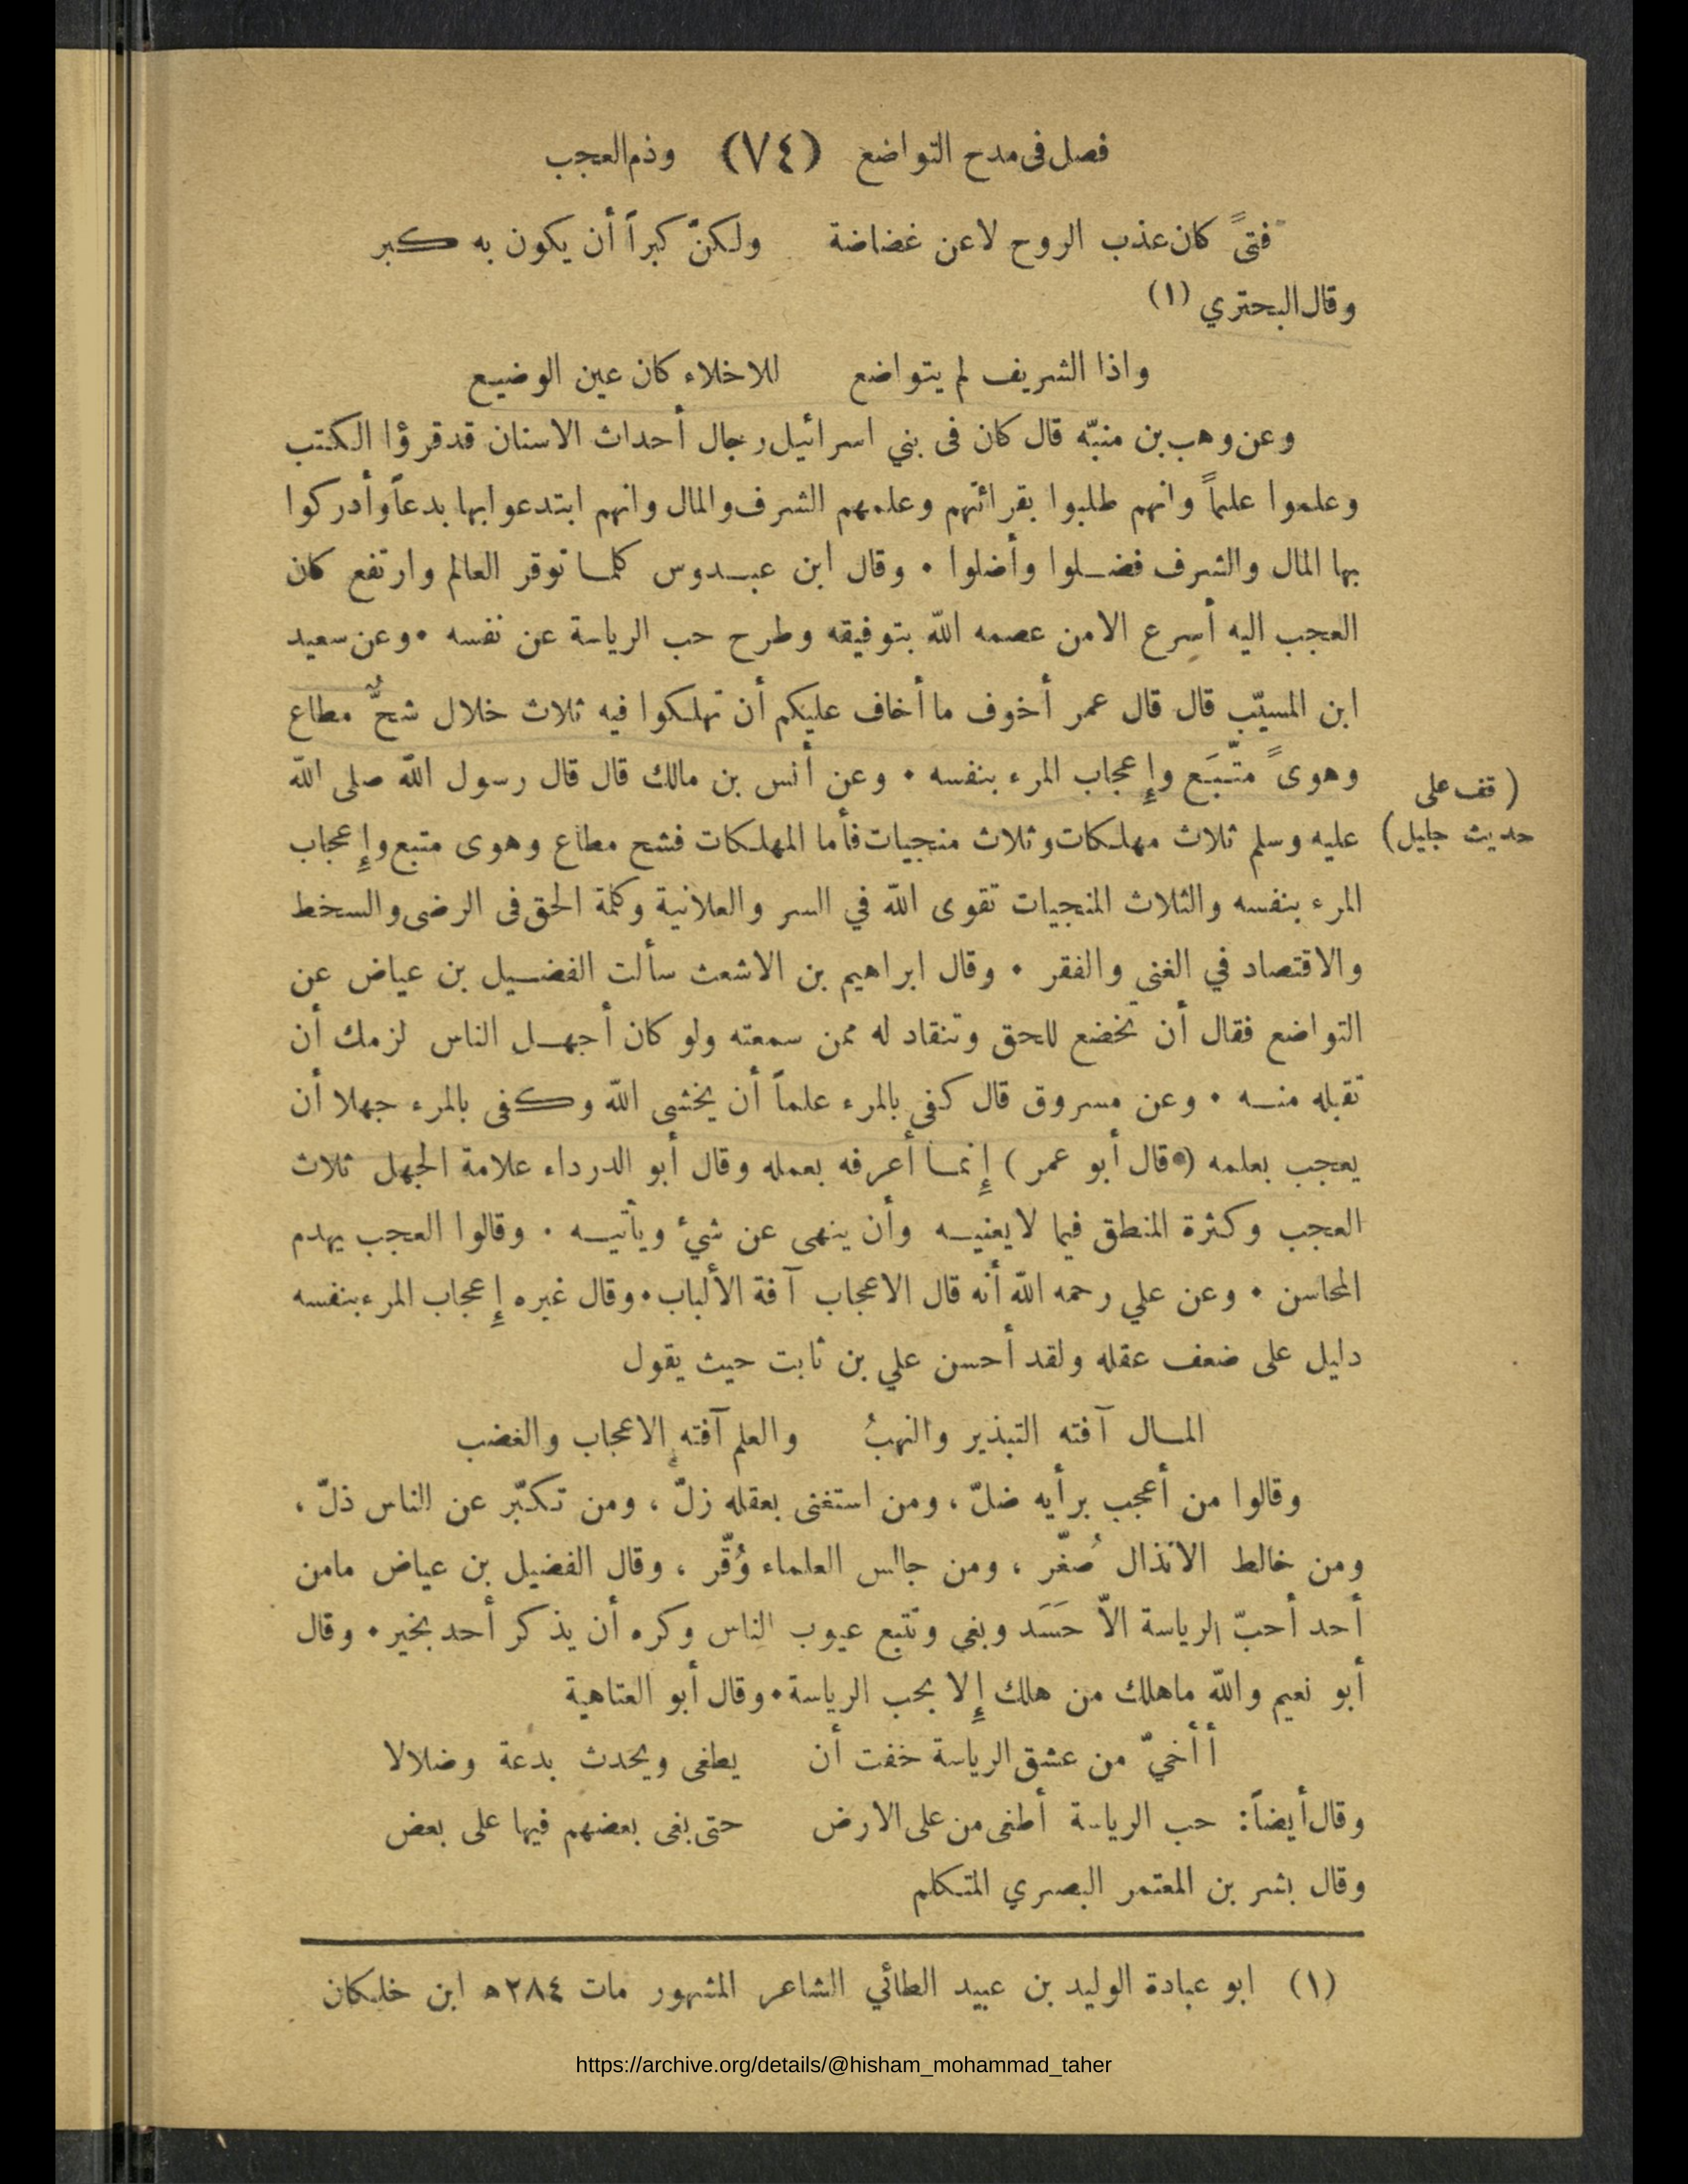 فصل فى مدح التواضع (٧٤) وذم العجب
فتىً كان عذب الروح لا عن غضاضة ولكنّ كبراً أن يكون به كبر
وقال البحتري (١)
واذا الشريف لم يتواضع للاخلاء كان عين الوضيع
وعن وهب بن منبّه قال كان فى بني اسرائيل رجال أحداث الاسنان قد قرؤا الكتب
وعلموا علماً وانهم طلبوا بقرائتهم وعلمهم الشرف والمال وانهم ابتدعوا بها بدعاً وأدركوا
بها المال والشرف فضلوا وأضلوا • وقال ابن عبدوس كلما توقر العالم وارتفع كان
العجب اليه أسرع الا من عصمه الله بتوفيقه وطرح حب الرياسة عن نفسه • وعن سعيد
ابن المسيّب قال قال عمر أخوف ما أخاف عليكم أن تهلكوا فيه ثلاث خلال شحٌّ مطاع
وهوىً متّبَع وإعجاب المرء بنفسه • وعن أنس بن مالك قال قال رسول الله صلى الله
(قف على
حديث جليل)
عليه وسلم ثلاث مهلكات وثلاث منجيات فأما المهلكات فشح مطاع وهوى متبع وإعجاب
المرء بنفسه والثلاث المنجيات تقوى الله في السر والعلانية وكلمة الحق فى الرضى والسخط
والاقتصاد في الغنى والفقر • وقال ابراهيم بن الاشعث سألت الفضيل بن عياض عن
التواضع فقال أن تخضع للحق وتنقاد له ممن سمعته ولو كان أجهل الناس لزمك أن
تقبله منه • وعن مسروق قال كفى بالمرء علماً أن يخشى الله وكفى بالمرء جهلا أن
يعجب بعلمه (•قال أبو عمر) إنما أعرفه بعمله وقال أبو الدرداء علامة الجهل ثلاث
العجب وكثرة المنطق فيما لا يعنيه وأن ينهى عن شئ ويأتيه • وقالوا العجب يهدم
المحاسن • وعن علي رحمه الله أنه قال الاعجاب آفة الألباب • وقال غيره إعجاب المرء بنفسه
دليل على ضعف عقله ولقد أحسن علي بن ثابت حيث يقول
المال آفته التبذير والنهبُ والعلم آفته الاعجاب والغضب
وقالوا من أعجب برأيه ضلّ ، ومن استغنى بعقله زلّ ، ومن تكبّر عن الناس ذلّ ،
ومن خالط الانذال صُغّر ، ومن جالس العلماء وُقّر ، وقال الفضيل بن عياض ما من
أحد أحبّ الرياسة الاّ حَسَد وبغى وتتبع عيوب الناس وكره أن يذكر أحد بخير • وقال
أبو نعيم والله ما هلك من هلك إلا بحب الرياسة • وقال أبو العتاهية
أأخيّ من عشق الرياسة خفت أن يطغى ويحدث بدعة وضلالا
وقال أيضاً : حب الرياسة أطغى من على الارض حتى بغى بعضهم فيها على بعض
وقال بشر بن المعتمر البصري المتكلم
(١) ابو عبادة الوليد بن عبيد الطائي الشاعر المشهور مات ٢٨٤ه ابن خلكان
https://archive.org/details/@hisham_mohammad_taher